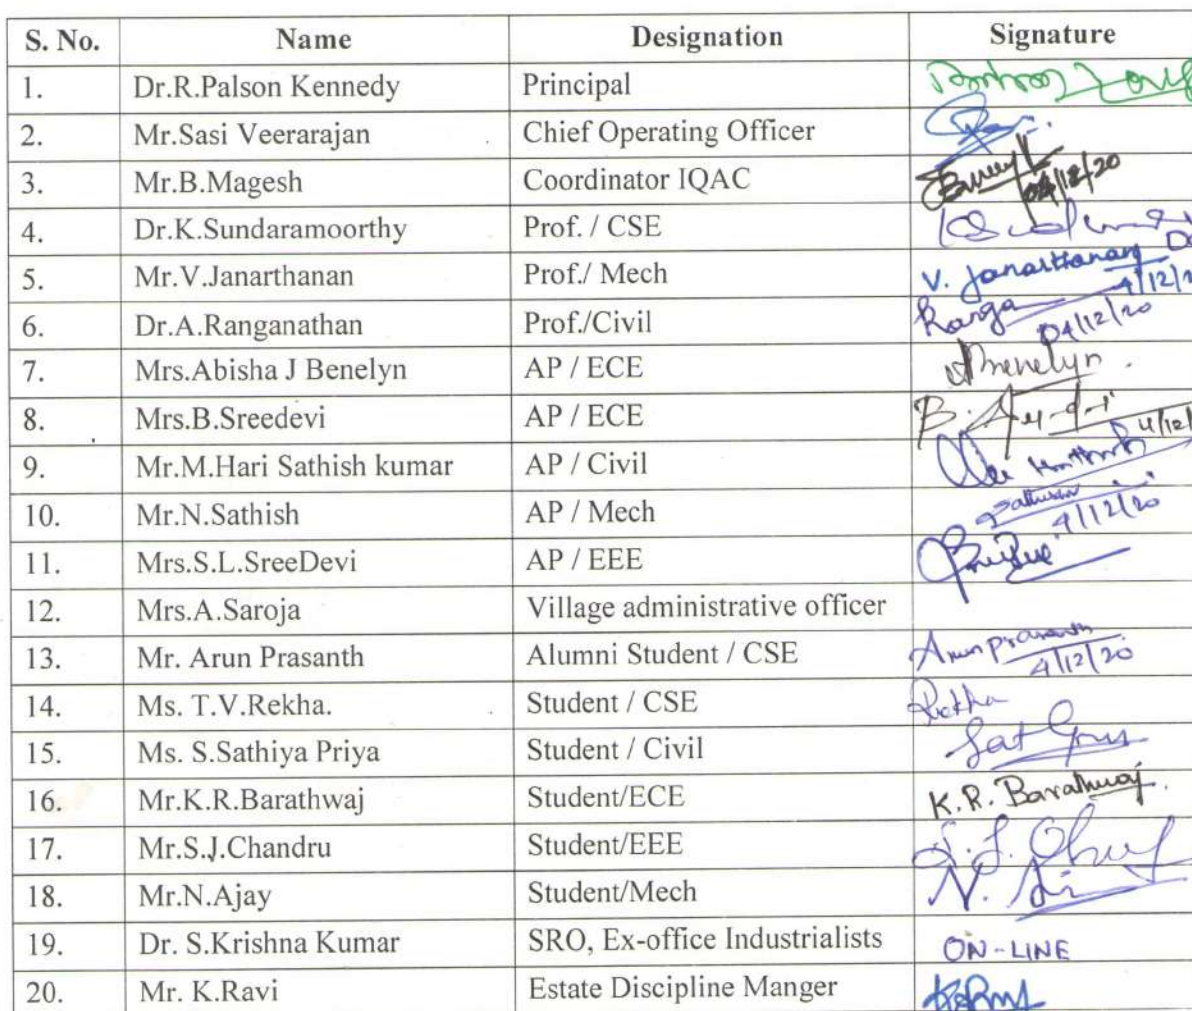 S. No. Name Designation Signature
1. Dr.R.Palson Kennedy Principal
2. Mr.Sasi Veerarajan Chief Operating Officer
3. Mr.B.Magesh Coordinator IQAC 04/12/20
4. Dr.K.Sundaramoorthy Prof. / CSE
5. Mr.V.Janarthanan Prof./ Mech V. Janarthanan
6. Dr.A.Ranganathan Prof./Civil Ranga 04/12/20
7. Mrs.Abisha J Benelyn AP / ECE
8. Mrs.B.Sreedevi AP / ECE
9. Mr.M.Hari Sathish kumar AP / Civil
10. Mr.N.Sathish AP / Mech 4/12/20
11. Mrs.S.L.SreeDevi AP / EEE
12. Mrs.A.Saroja Village administrative officer
13. Mr. Arun Prasanth Alumni Student / CSE 4/12/20
14. Ms. T.V.Rekha. Student / CSE Rekha
15. Ms. S.Sathiya Priya Student / Civil
16. Mr.K.R.Barathwaj Student/ECE K.R. Barathwaj.
17. Mr.S.J.Chandru Student/EEE
18. Mr.N.Ajay Student/Mech
19. Dr. S.Krishna Kumar SRO, Ex-office Industrialists ON-LINE
20. Mr. K.Ravi Estate Discipline Manger